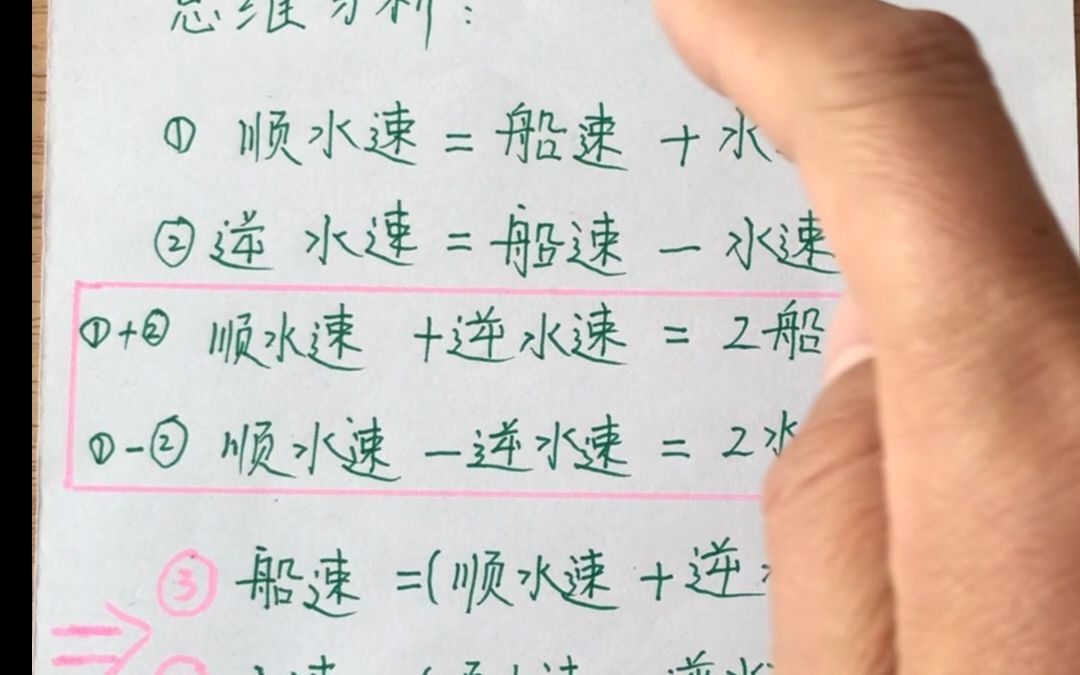 思维分析:
① 顺水速 = 船速 + 水
② 逆水速 = 船速 - 水速
①+② 顺水速 +逆水速 = 2船
①-② 顺水速 -逆水速 = 2水
③ 船速 =(顺水速 +逆